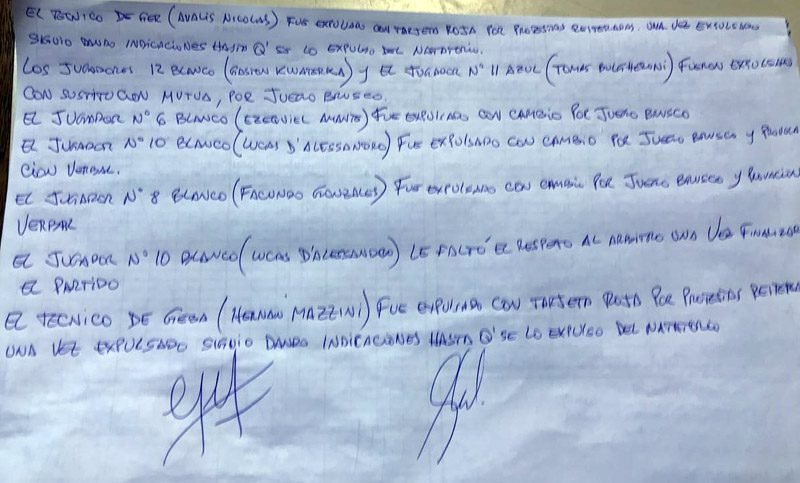 EL TECNICO DE GER (AVALIS NICOLAS) FUE EXPULSADO CON TARJETA ROJA POR PROTESTAS REITERADAS. UNA VEZ EXPULSADO
SIGUIO DANDO INDICACIONES HASTA Q' SE LO EXPULSO DEL NATATORIO.
LOS JUGADORES 12 BLANCO (GASTON KWATERKA) Y EL JUGADOR N° 11 AZUL (TOMAS BULGHERONI) FUERON EXPULSADO
CON SUSTITUCION MUTUA, POR JUEGO BRUSCO.
EL JUGADOR N° 6 BLANCO (EZEQUIEL AMANTE) FUE EXPULSADO CON CAMBIO POR JUEGO BRUSCO
EL JUGADOR N° 10 BLANCO (LUCAS D'ALESSANDRO) FUE EXPULSADO CON CAMBIO POR JUEGO BRUSCO Y PROVOCA
CION VERBAL.
EL JUGADOR N° 8 BLANCO (FACUNDO GONZALES) FUE EXPULSADO CON CAMBIO POR JUEGO BRUSCO Y PROVACION
VERBAR
EL JUGADOR N° 10 BLANCO (LUCAS D'ALESSANDRO) LE FALTÓ EL RESPETO AL ARBITRO UNA VEZ FINALIZAR
EL PARTIDO
EL TECNICO DE GEBA (HERNAN MAZZINI) FUE EXPULSADO CON TARJETA ROJA POR PROTESTAS REITERA
UNA VEZ EXPULSADO SIGUIO DANDO INDICACIONES HASTA Q' SE LO EXPULSO DEL NATATORIO